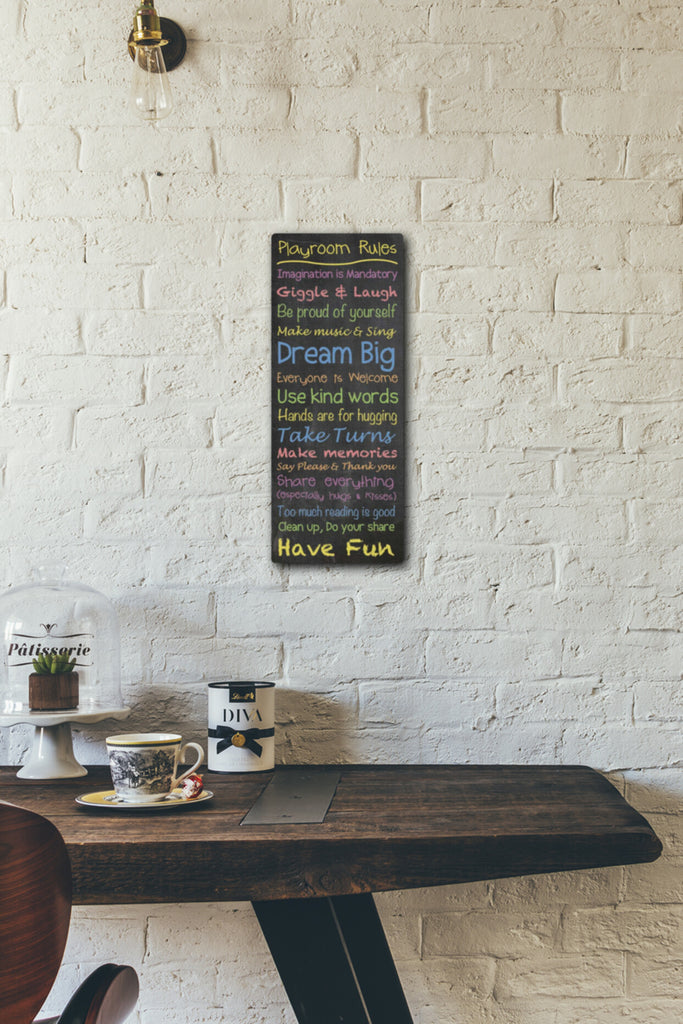 Playroom Rules
Imagination is Mandatory
Giggle & Laugh
Be proud of yourself
Make music & Sing
Dream Big
Everyone is Welcome
Use kind words
Hands are for hugging
Take Turns
Make memories
Say Please & Thank you
Share everything
(especially hugs & kisses)
Too much reading is good
Clean up, Do your share
Have Fun
Pâtisserie
Lindt
DIVA